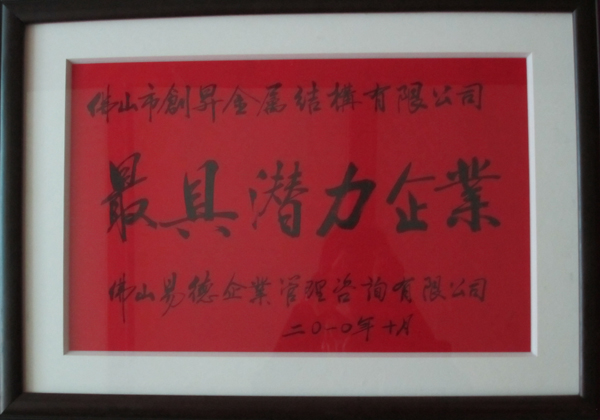 佛山市創昇金属结構有限公司
最具潜力企業
佛山易德企業管理咨詢有限公司
二〇一〇年十月